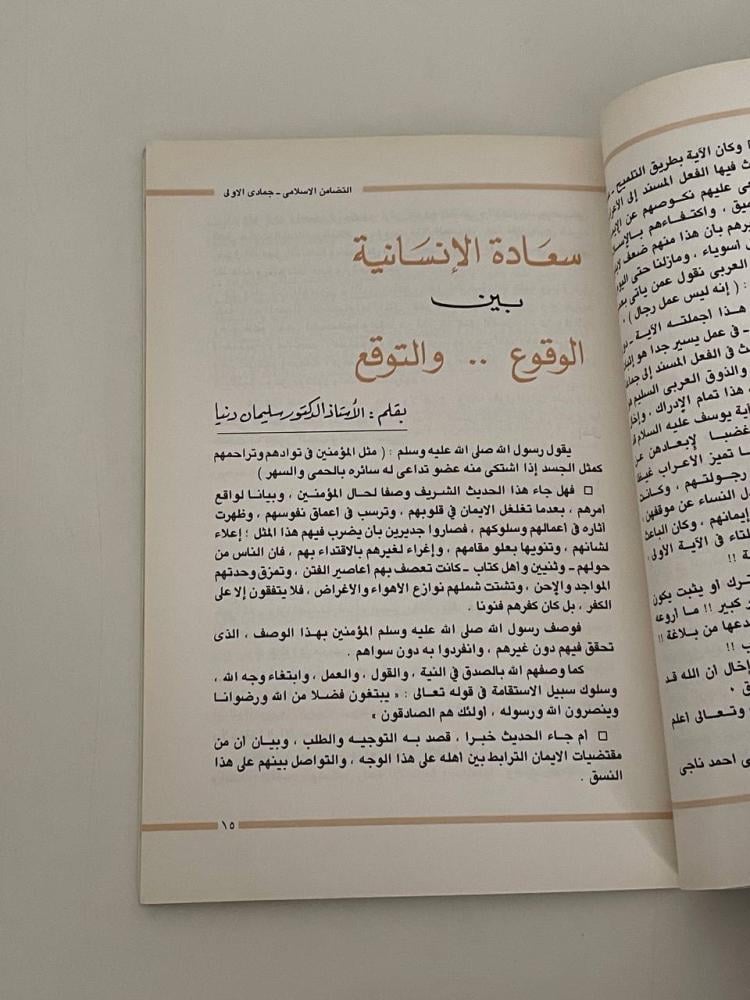 التضامن الاسلامى - جمادى الاولى
سعادة الإنسانية
بين
الوقوع .. والتوقع
بقلم : الأستاذ الدكتور سليمان دنيا
يقول رسول الله صلى الله عليه وسلم : ( مثل المؤمنين فى توادهم وتراحمهم
كمثل الجسد إذا اشتكى منه عضو تداعى له سائره بالحمى والسهر )
□ فهل جاء هذا الحديث الشريف وصفا لحال المؤمنين ، وبيانا لواقع
أمرهم ، بعدما تغلغل الايمان فى قلوبهم ، وترسب فى أعماق نفوسهم ، وظهرت
آثاره فى أعمالهم وسلوكهم ، فصاروا جديرين بأن يضرب فيهم هذا المثل ؛ إعلاء
لشأنهم ، وتنويها بعلو مقامهم ، وإغراء لغيرهم بالاقتداء بهم ، فان الناس من
حولهم - وثنيين وأهل كتاب - كانت تعصف بهم أعاصير الفتن ، وتمزق وحدتهم
المواجد والإحن ، وتشتت شملهم نوازع الاهواء والأغراض ، فلا يتفقون إلا على
الكفر ، بل كان كفرهم فنونا .
فوصف رسول الله صلى الله عليه وسلم المؤمنين بهذا الوصف ، الذى
تحقق فيهم دون غيرهم ، وانفردوا به دون سواهم .
كما وصفهم الله بالصدق فى النية ، والقول ، والعمل ، وابتغاء وجه الله ،
وسلوك سبيل الاستقامة فى قوله تعالى : « يبتغون فضلا من الله ورضوانا
وينصرون الله ورسوله ، أولئك هم الصادقون »
□ أم جاء الحديث خبرا ، قصد به التوجيه والطلب ، وبيان أن من
مقتضيات الايمان الترابط بين أهله على هذا الوجه ، والتواصل بينهم على هذا
النسق .
١٥
وكان الآية بطريق التلميح
فيها الفعل المسند إلى
عليهم نكوصهم عن
، واكتفاءهم
بأن هذا منهم ضعف
أسوياء ، ومازلنا حتى اليوم
العربى نقول عمن يأتى
: ( إنه ليس عمل رجال ) .
هذا أجملته الآية
- فى عمل يسير جدا هو
فى الفعل المسند إلى
والذوق العربى السليم
هذا تمام الإدراك ،
يوسف عليه السلام
غضبا لإبعادهن
تميز الأعراب
رجولتهم ، وكانت
النساء عن موقفهن
إيمانهم ، وكان الباعث
فى الآية الأولى
!!
أو يثبت يكون
كبير !! ما أروعه
من بلاغة !!
!!
إخال أن الله قد
.
وتعالى أعلم
أحمد ناجى